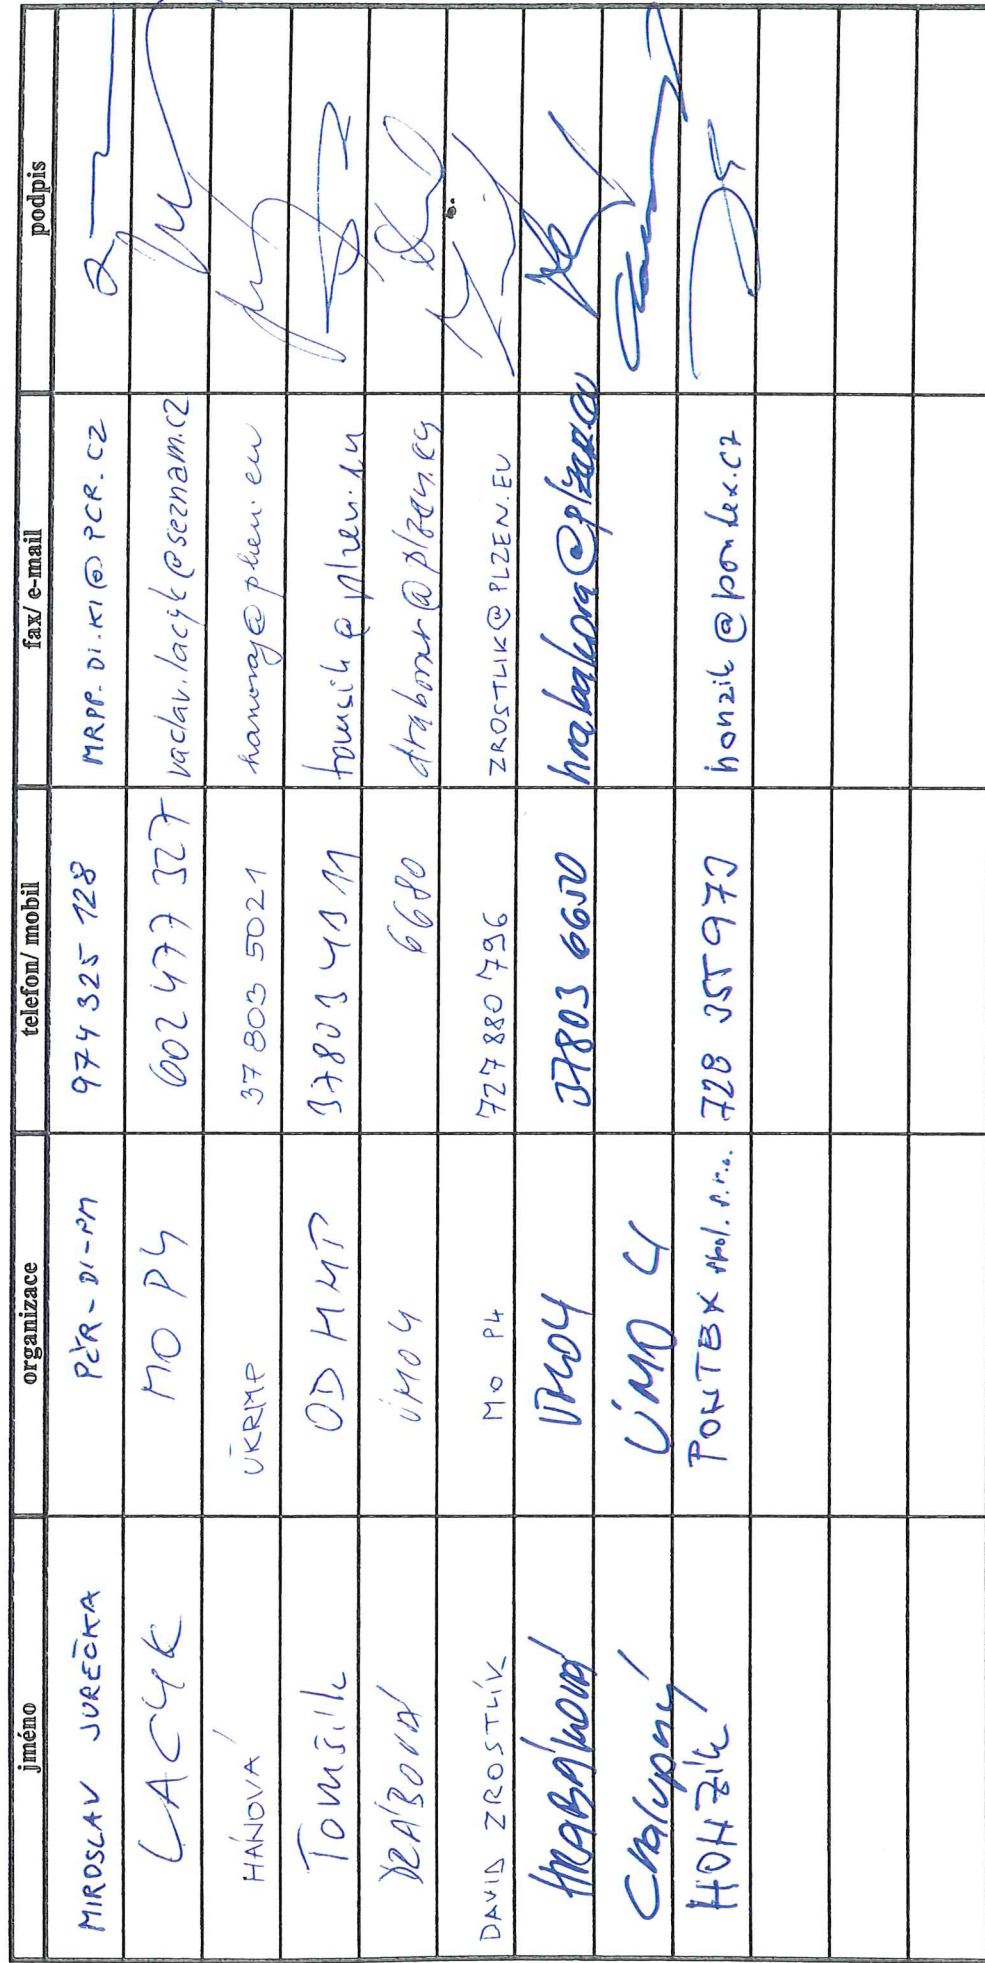 jméno organizace telefon/ mobil fax/ e-mail podpis
MIROSLAV JUREČKA PČR-DI-PM 974 325 128 MRPP.DI.KI@PCR.CZ
LACYK MO P4 602 477 327 vaclav.lacyk@seznam.cz
HÁNOVÁ ÚKRMP 37 803 5021 hanovaj@plzen.eu
Tomšík OD MMP 37803 4111 tomsik@plzen.eu
DRÁBOVÁ ÚMO4 6680
DAVID ZROSTLÍK MO P4 727 880 796 ZROSTLIK@PLZEN.EU
HRABÁKOVÁ ÚMO4 37803 6650 hrabakova@plzen.eu
Chalupný ÚMO 4
HONZÍK PONTEX spol. s.r.o. 728 355 973 honzik@pontex.cz